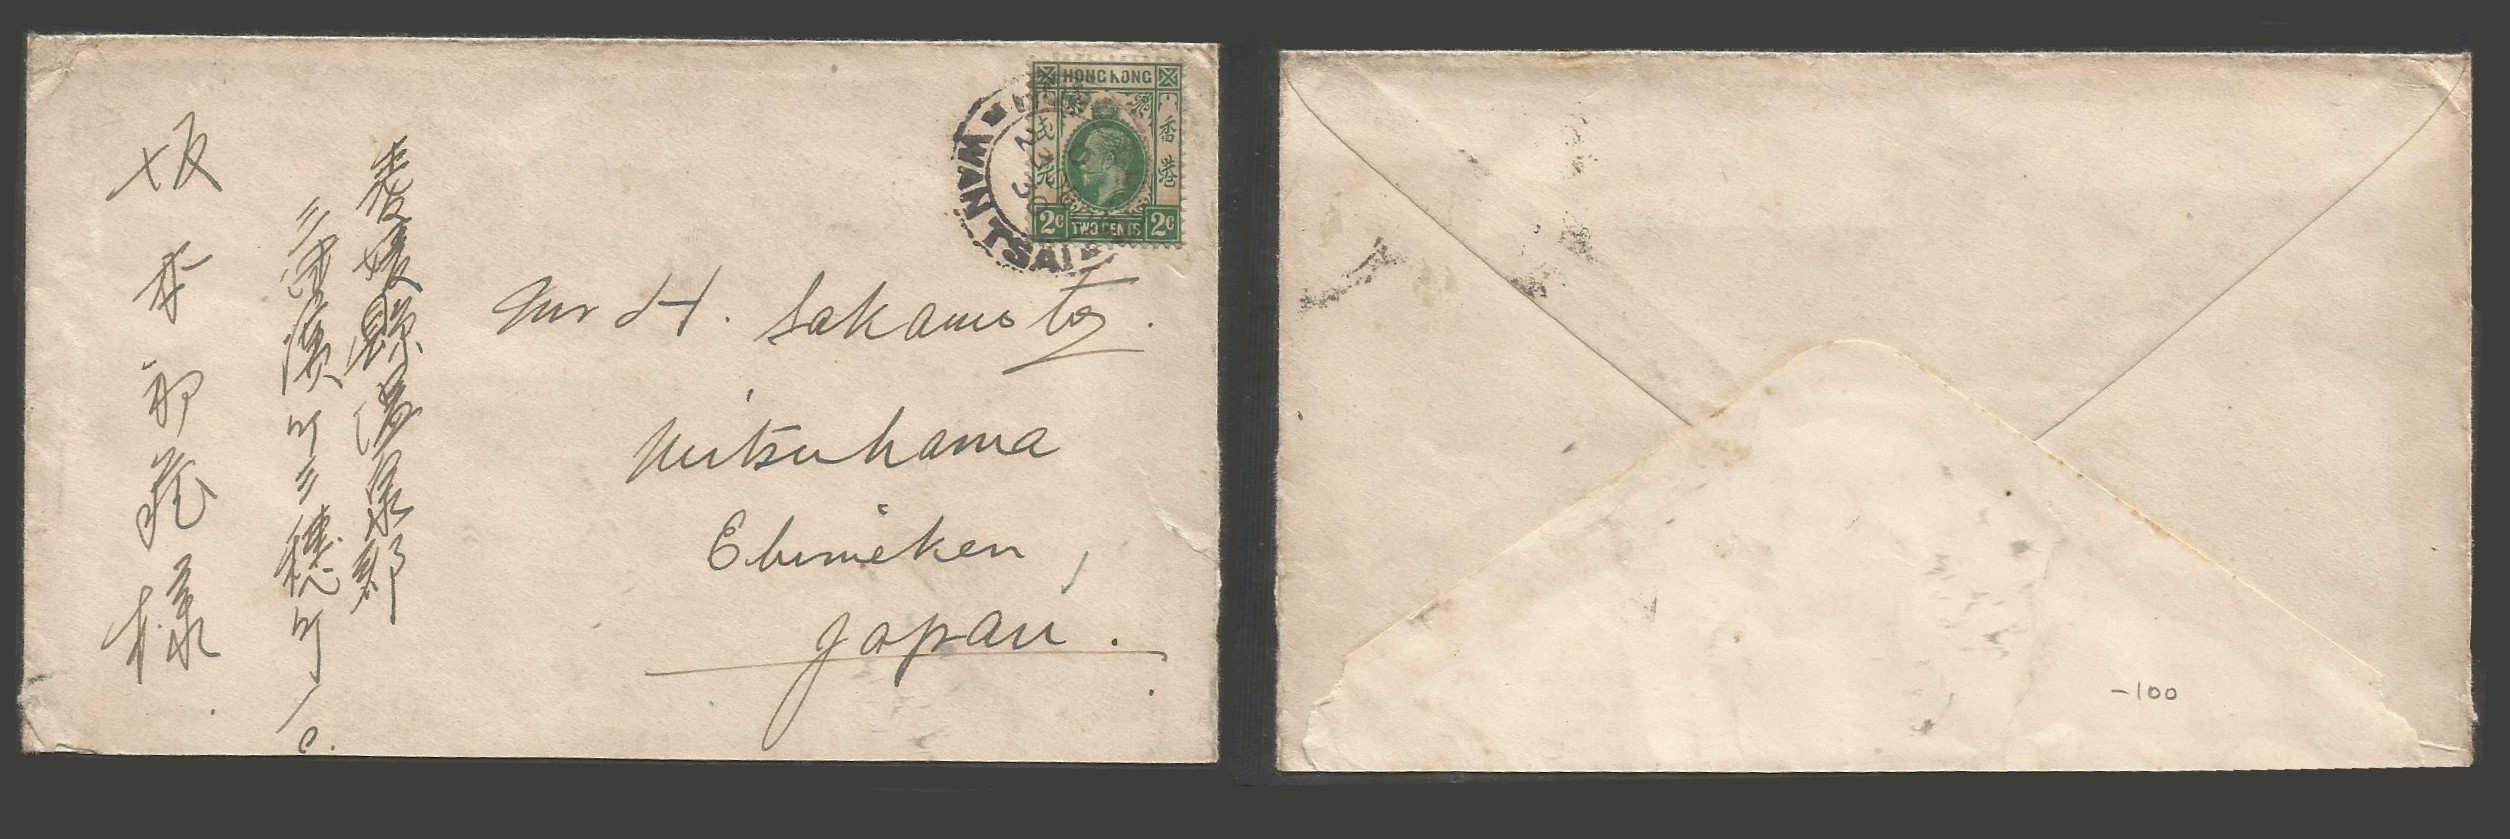 HONG KONG
香港
2c TWO CENTS 2c
WAN TSAI
23
30
Mr H. Sakamoto.
Mitsuhama
Ehimeken,
Japan.
愛媛縣温泉郡
三津濱町三穂町
坂本
様
-100